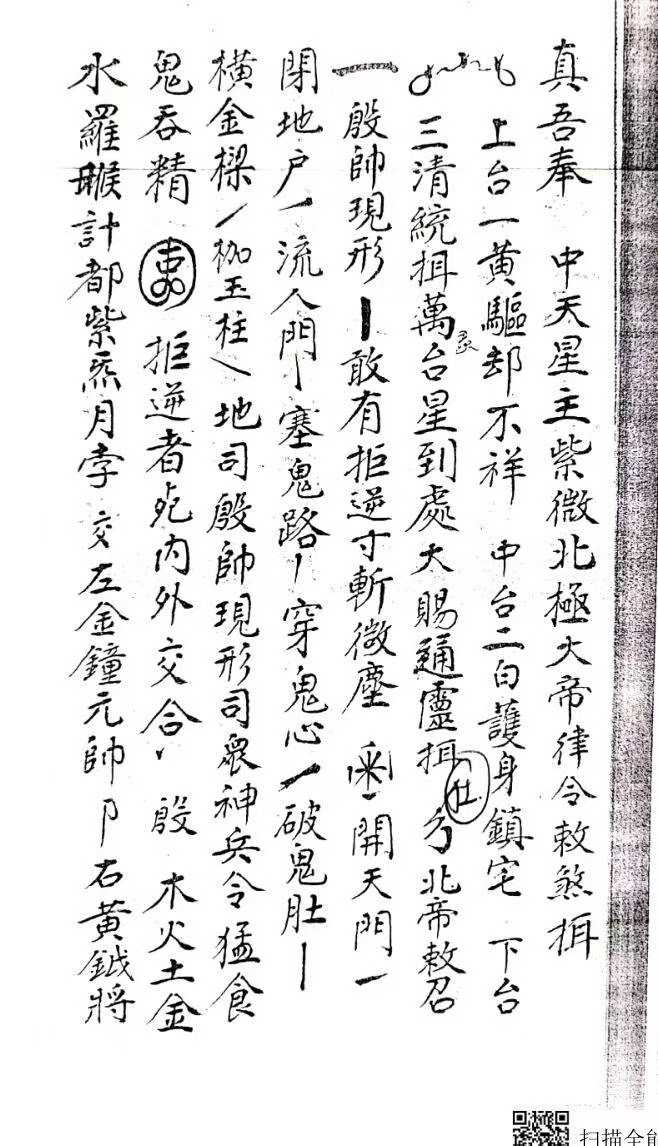 真吾奉 中天星主紫微北極大帝律令敕煞揖
上台一黄驅却不祥 中台二白護身鎮宅 下台
三清統揖萬台星到處大賜通靈揖 北帝敕召
殷帥現形 敢有拒逆寸斬微塵 開天門一
閉地户一流人門丨塞鬼路丨穿鬼心一破鬼肚丨
横金樑丿枷玉柱乀地司殷帥現形司衆神兵令猛食
鬼吞精 拒逆者死内外交合丶 殷 木火土金
水羅㬋計都紫炁月孛 交左金鐘元帥卩右黄鉞將
扫描全能